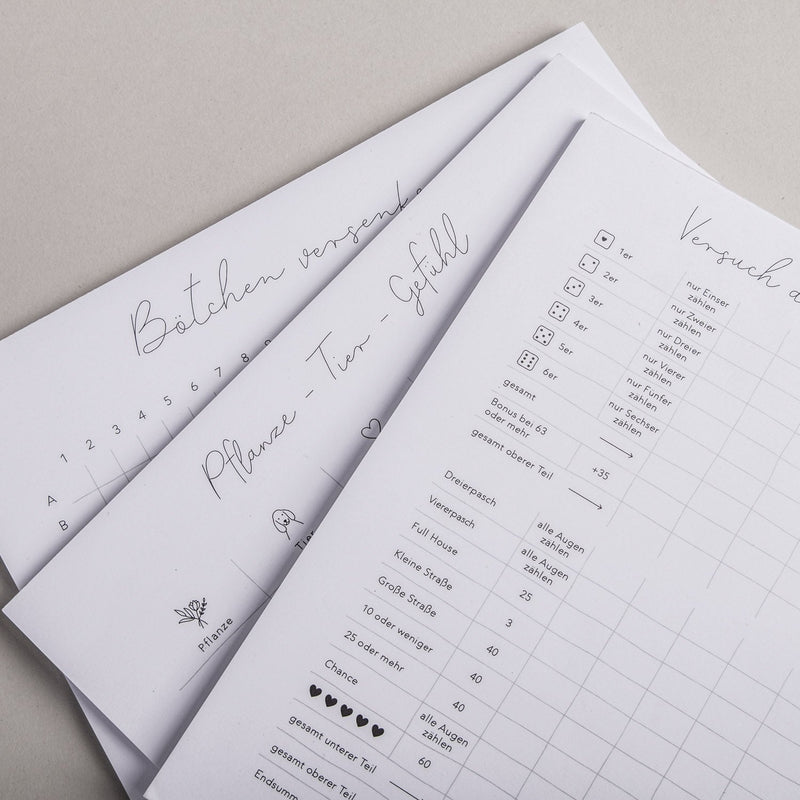 Bötchen versenke
1 2 3 4 5 6 7 8 9
A
B
Pflanze - Tier - Gefühl
Pflanze
Tier
Versuch d
1er nur Einser
zählen
2er nur Zweier
zählen
3er nur Dreier
zählen
4er nur Vierer
zählen
5er nur Fünfer
zählen
6er nur Sechser
zählen
gesamt
Bonus bei 63
oder mehr +35
gesamt oberer Teil
Dreierpasch alle Augen
zählen
Viererpasch alle Augen
zählen
Full House 25
Kleine Straße 3
Große Straße 40
10 oder weniger 40
25 oder mehr 40
Chance alle Augen
zählen
♥♥♥♥♥ 60
gesamt unterer Teil
gesamt oberer Teil
Endsumm